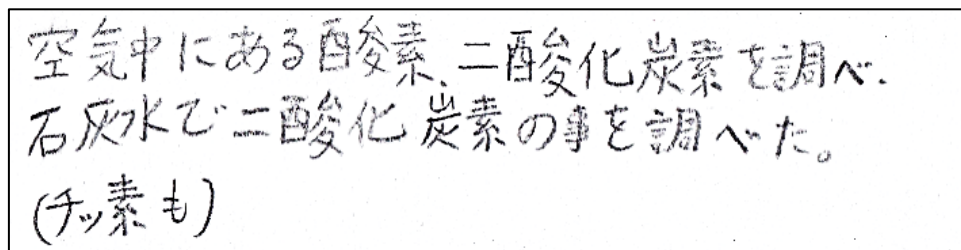 空気中にある酸素、二酸化炭素を調べ、
石灰水で二酸化炭素の事を調べた。
(チッ素も)